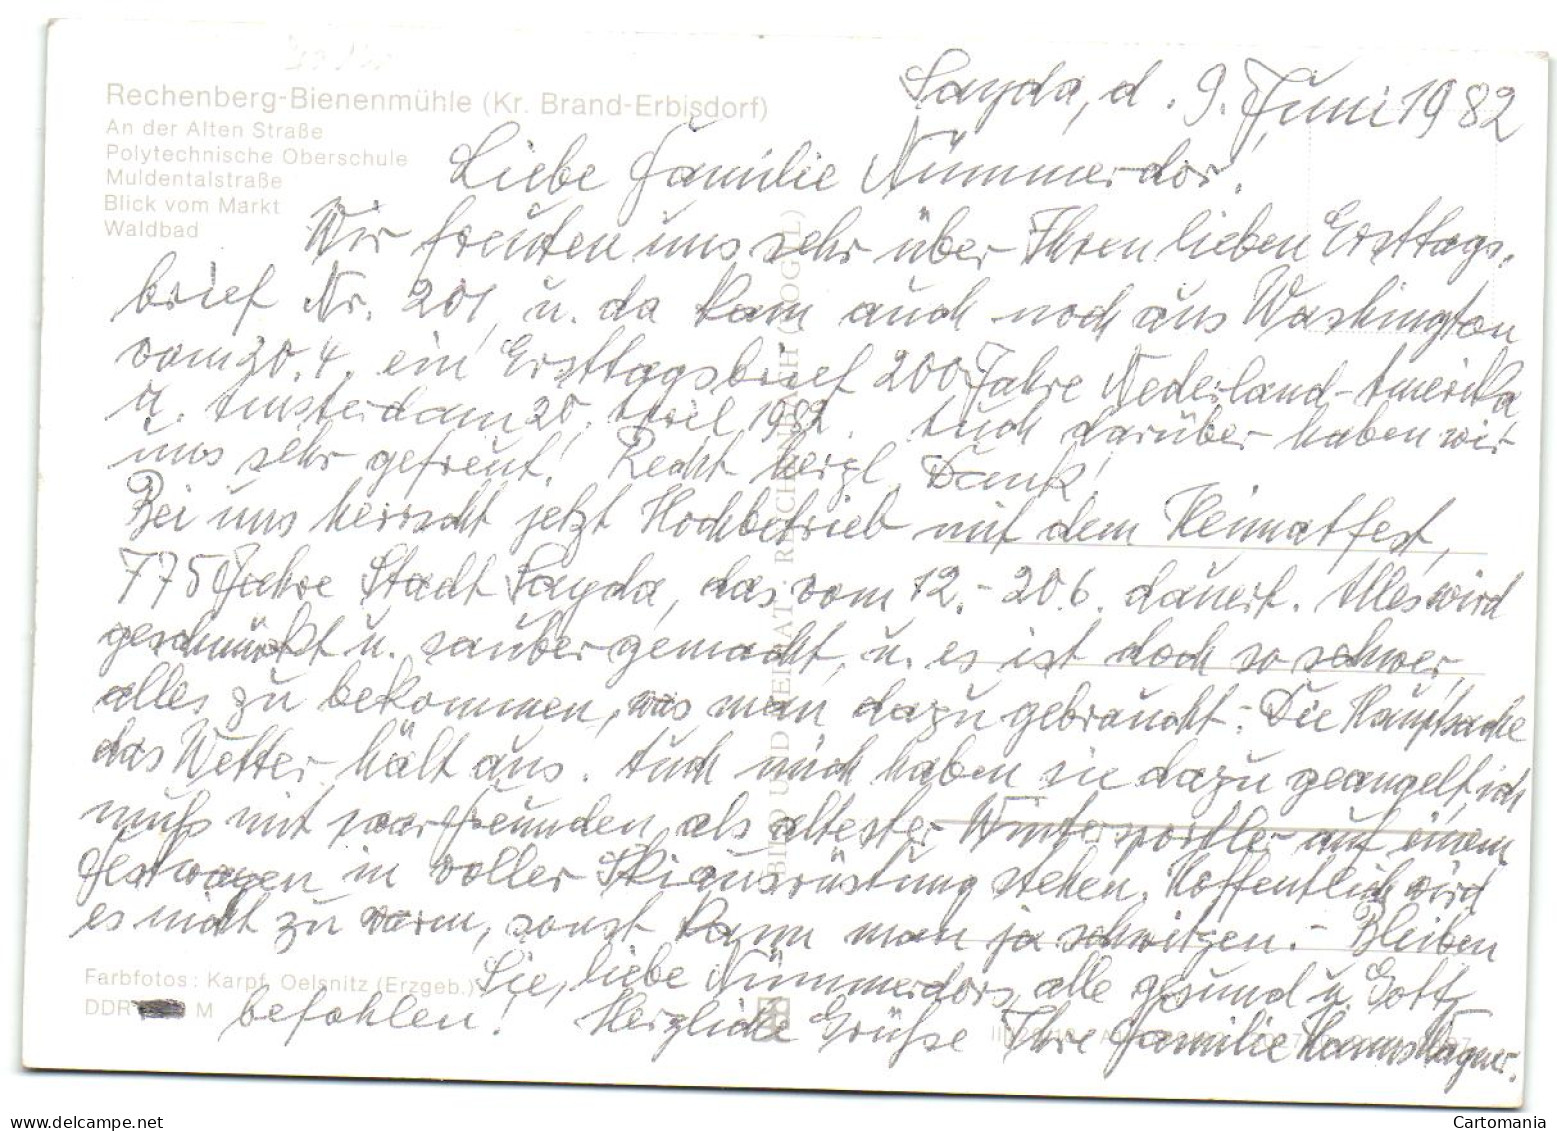 Rechenberg-Bienenmühle (Kr. Brand-Erbisdorf)
An der Alten Straße
Polytechnische Oberschule
Muldentalstraße
Blick vom Markt
Waldbad
Sayda, d. 9. Juni 1982
Liebe Familie Nümmerdor!
Wir freuten uns sehr über Ihren lieben Ersttags-
brief Nr. 201, u. da kam auch noch aus Washington
vom 20. 4. ein Ersttagsbrief 200 Jahre Nederland-Amerika
u. Amsterdam 20. April 1982. Auch darüber haben wir
uns sehr gefreut! Recht herzl. Dank!
Bei uns herrscht jetzt Hochbetrieb mit dem Heimatfest,
775 Jahre Stadt Sayda, das vom 12.-20.6. dauert. Alles wird
geschmückt u. sauber gemacht, u. es ist doch so schwer,
alles zu bekommen, was man dazu gebraucht. Die Hauptsache
das Wetter hält aus. Auch mich haben sie dazu geangelt, ich
muß mit paar Freunden als ältester Wintersportler auf einem
Festwagen in voller Skiausrüstung stehen. Hoffentlich wird
es nicht zu warm, sonst kann man ja schwitzen.- Bleiben
Sie, liebe Nümmerdors, alle gesund u. Gott
befohlen! Herzliche Grüße Ihre Familie Hanns Wagner.
Farbfotos: Karpf, Oelsnitz (Erzgeb.)
DDR M
BILD UND HEIMAT REICHENBACH (VOGTL)
Cartomania
delcampe.net